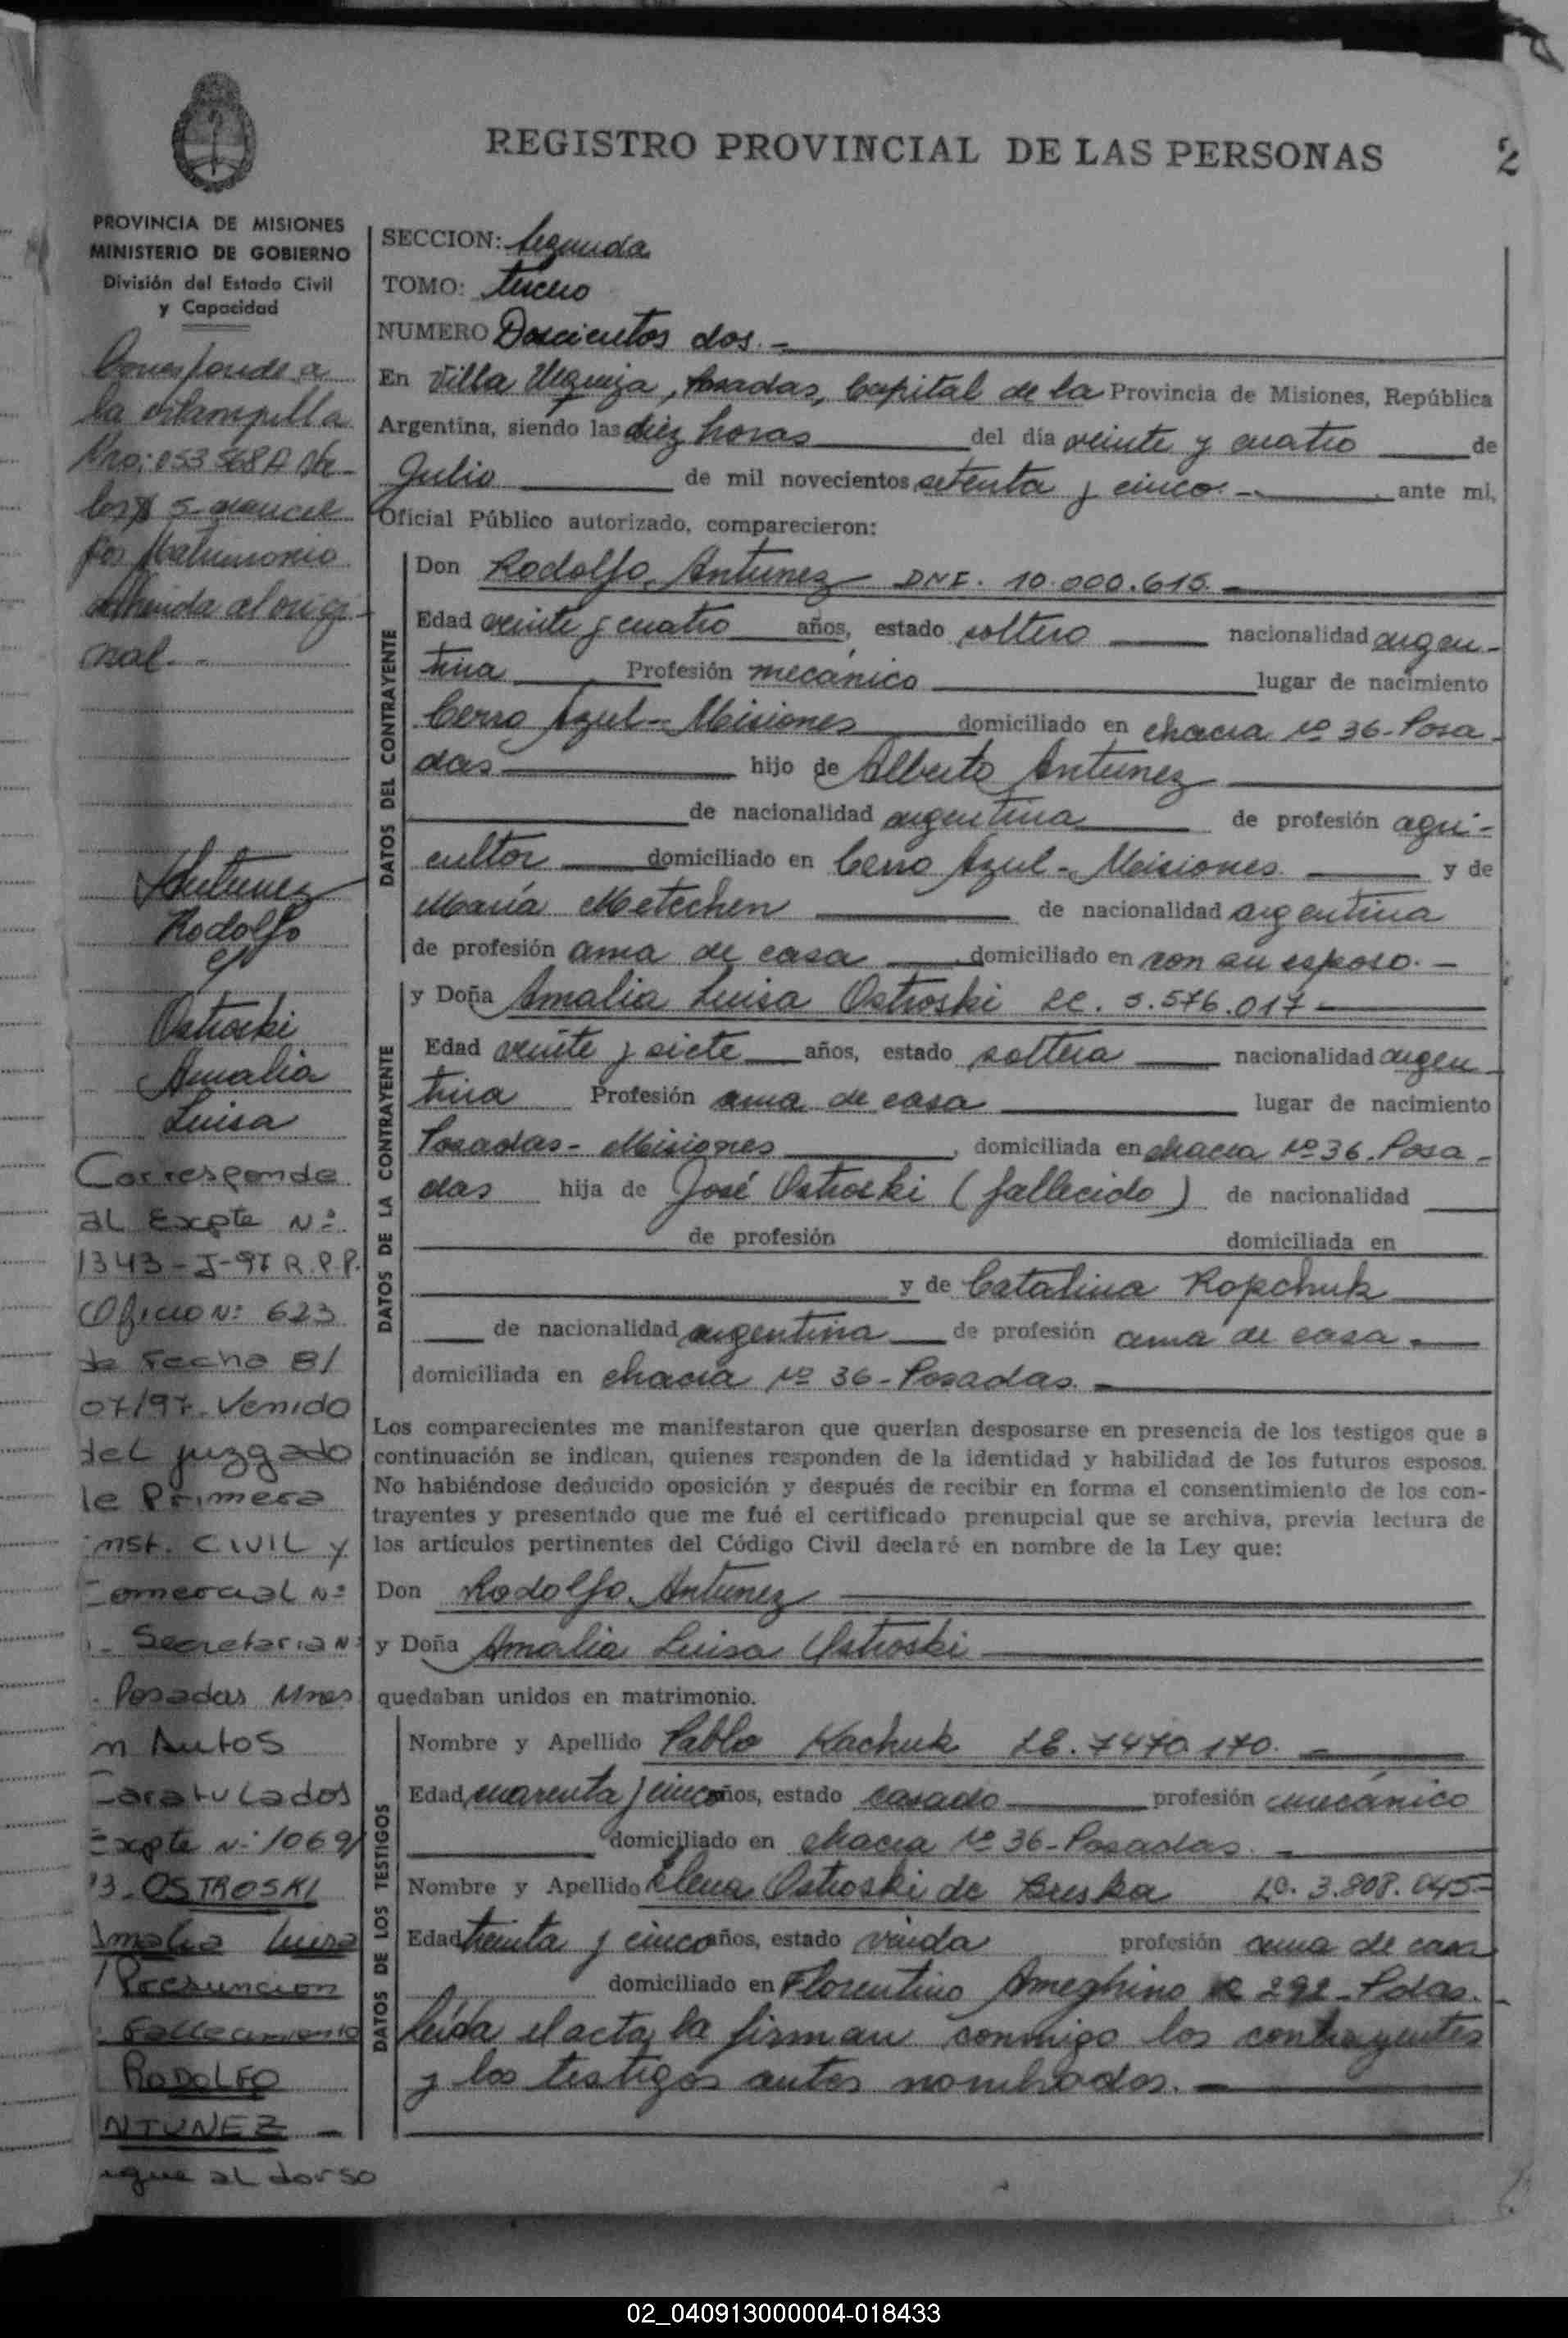 REGISTRO PROVINCIAL DE LAS PERSONAS
2
PROVINCIA DE MISIONES
MINISTERIO DE GOBIERNO
División del Estado Civil
y Capacidad
Corresponde a
la estampilla
Nro: 053568A Va-
lor $ 5- arancel
por Matrimonio
adherida al origi-
nal.-
Antunez
Rodolfo
c/
Ostroski
Amalia
Luisa
Corresponde
al Expte Nº
1343-J-97 R.P.P.
Oficio Nº 623
de Fecha 8/
07/97. Venido
del juzgado
de Primera
inst. CIVIL y
Comercial Nº
Secretaria Nº
Posadas Mnes
n Autos
Caratulados
Expte Nº 1069/
93-OSTROSKI
Amalia Luisa
Presuncion
Fallecimiento
RODOLFO
NTUNEZ -
igue al dorso
SECCION: Segunda
TOMO: tercero
NUMERO Doscientos dos.-
En Villa Urquiza, Posadas, Capital de la Provincia de Misiones, República
Argentina, siendo las diez horas del día veinte y cuatro de
Julio de mil novecientos setenta y cinco.-, ante mí,
Oficial Público autorizado, comparecieron:
DATOS DEL CONTRAYENTE
Don Rodolfo Antunez DNI. 10.000.615.
Edad veinte y cuatro años, estado soltero nacionalidad argen-
tina Profesión mecánico lugar de nacimiento
Cerro Azul- Misiones domiciliado en chacra Nº 36-Posa-
das hijo de Alberto Antunez
de nacionalidad argentina de profesión agri-
cultor domiciliado en Cerro Azul- Misiones. y de
María Metechen de nacionalidad argentina
de profesión ama de casa, domiciliado en con su esposo.-
DATOS DE LA CONTRAYENTE
y Doña Amalia Luisa Ostroski LC. 5.576.017-
Edad veinte y siete años, estado soltera nacionalidad argen-
tina Profesión ama de casa lugar de nacimiento
Posadas- Misiones, domiciliada en chacra Nº 36. Posa-
das hija de José Ostroski (fallecido) de nacionalidad
de profesión domiciliada en
y de Catalina Kopchuk
de nacionalidad argentina de profesión ama de casa.
domiciliada en chacra Nº 36-Posadas.
Los comparecientes me manifestaron que querían desposarse en presencia de los testigos que a
continuación se indican, quienes responden de la identidad y habilidad de los futuros esposos.
No habiéndose deducido oposición y después de recibir en forma el consentimiento de los con-
trayentes y presentado que me fué el certificado prenupcial que se archiva, previa lectura de
los artículos pertinentes del Código Civil declaré en nombre de la Ley que:
Don Rodolfo Antunez
y Doña Amalia Luisa Ostroski
quedaban unidos en matrimonio.
DATOS DE LOS TESTIGOS
Nombre y Apellido Pablo Kachuk LE. 7470.170.
Edad cuarenta y cinco años, estado casado profesión mecánico
domiciliado en chacra Nº 36-Posadas.
Nombre y Apellido Elena Ostroski de Breska LC. 3.808.045-
Edad treinta y cinco años, estado viuda profesión ama de casa
domiciliado en Florentino Ameghino 292-Pdas.
leída el acta, la firman conmigo los contrayentes
y los testigos antes nombrados.
02_040913000004-018433